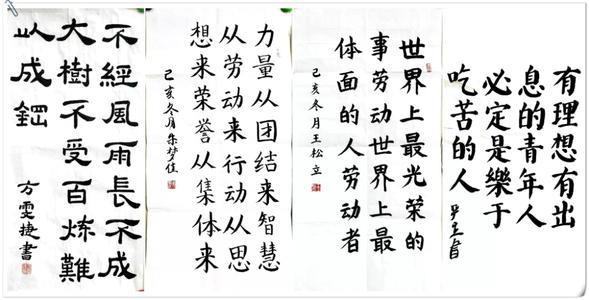 有理想有出
息的青年人
必定是樂于
吃苦的人
世界上最光荣的
事劳动世界上最
体面的人劳动者
己亥冬月王松立
力量从团结来智慧
从劳动来行动从思
想来荣誉从集体来
己亥冬月
不經風雨長不成
大樹不受百炼難
以成鋼
方雯捷書